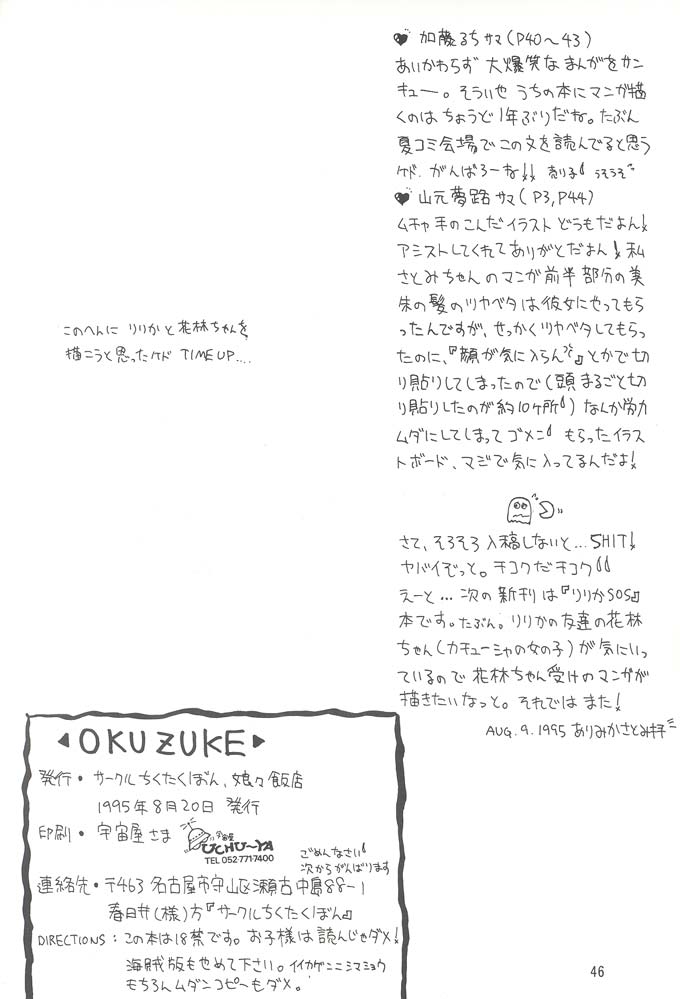 ♥ 加藤るちサマ(P40〜43)
あいかわらず 大爆笑な まんがを サン
キュー。そういや うちの本にマンガ描
くのは ちょうど1年ぶりだな。たぶん
夏コミ会場で この文を読んでると思う
ケド、がんばろーな!! 売り子 うそうそ
♥ 山元夢路サマ(P3,P44)
ムチャ手のこんだイラスト どうもだよん!
アシストしてくれてありがとだよん! 私
さとみちゃん のマンガ前半部分の美
朱の髪のツヤベタは彼女にやってもら
ったんですが、せっかくツヤベタしてもらっ
たのに、『顔が気に入らん』とかで切
り貼りしてしまったので(頭まるごと切
り貼りしたのが約10ヶ所)なんか労力
ムダにしてしまってゴメン もらったイラス
トボード、マジで気に入ってるんだよ!
このへんに りりかと花林ちゃんを
描こうと思ったケド TIME UP....
さて、そろそろ入稿しないと…SHIT!
ヤバイぞっと。チコクだチコク
えーと…次の新刊は『りりかSOS』
本です。たぶん。りりかの友達の花林
ちゃん(カチューシャの女の子)が気にいっ
ているので 花林ちゃん受けのマンガが
描きたいなっと。それでは また!
AUG. 9. 1995 ありみかさとみ拝
◀OKUZUKE▶
発行・サークルちくたくぼん、娘々飯店
1995年8月20日 発行
印刷・宇宙屋さま
宇宙屋
UCHU〜YA
TEL 052-771-7400
ごめんなさい
次からがんばります
連絡先・〒463 名古屋市守山区瀬古中島88-1
春日井(様)方『サークルちくたくぼん』
DIRECTIONS:この本は18禁です。お子様は読んじゃダメ!
海賊版もやめて下さい。イイカゲンニシマショウ
もちろんムダンコピーもダメ。
46